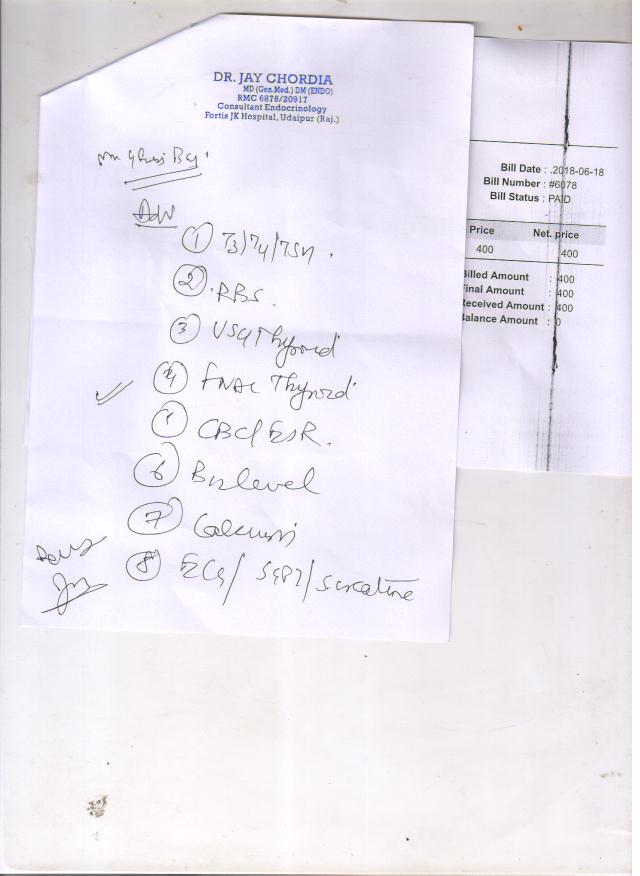 DR. JAY CHORDIA
MD (Gen.Med.) DM (ENDO)
RMC 6878/20917
Consultant Endocrinology
Fortis JK Hospital, Udaipur (Raj.)
Adv
① T3/T4/TSH.
② RBS.
③ USG Thyroid
④ FNAC Thyroid
⑤ CBC/ESR.
⑥ B12 level
⑦ Calcium
⑧ ECG/ SGPT/ S creatine
Bill Date : .2018-06-18
Bill Number : #6078
Bill Status : PAID
Price Net. price
400 400
Billed Amount : 400
Final Amount : 400
Received Amount : 400
Balance Amount : 0